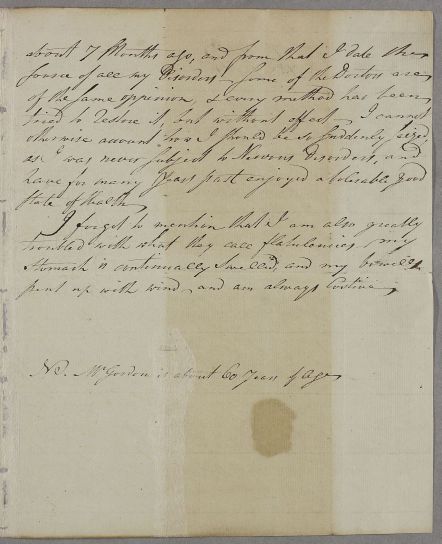 about 7 Months ago, and from that I date the
source of all my Disorders. Some of the Doctors are
of the same oppinion, & every method has been
tried to restore it, but without effect. I cannot
otherwise account how I should be so suddenly seized,
as I was never subject to Nervous Disorders, and
have for many Years past enjoyed a tolerably good
State of Health.
I forgot to mention that I am also greatly
troubled with what they call flatulencies, my
Stomach is continually Swelled, and my bowells
pent up with wind, and am always Costive,
NB. Mr Gordon is about 60 Years of Age